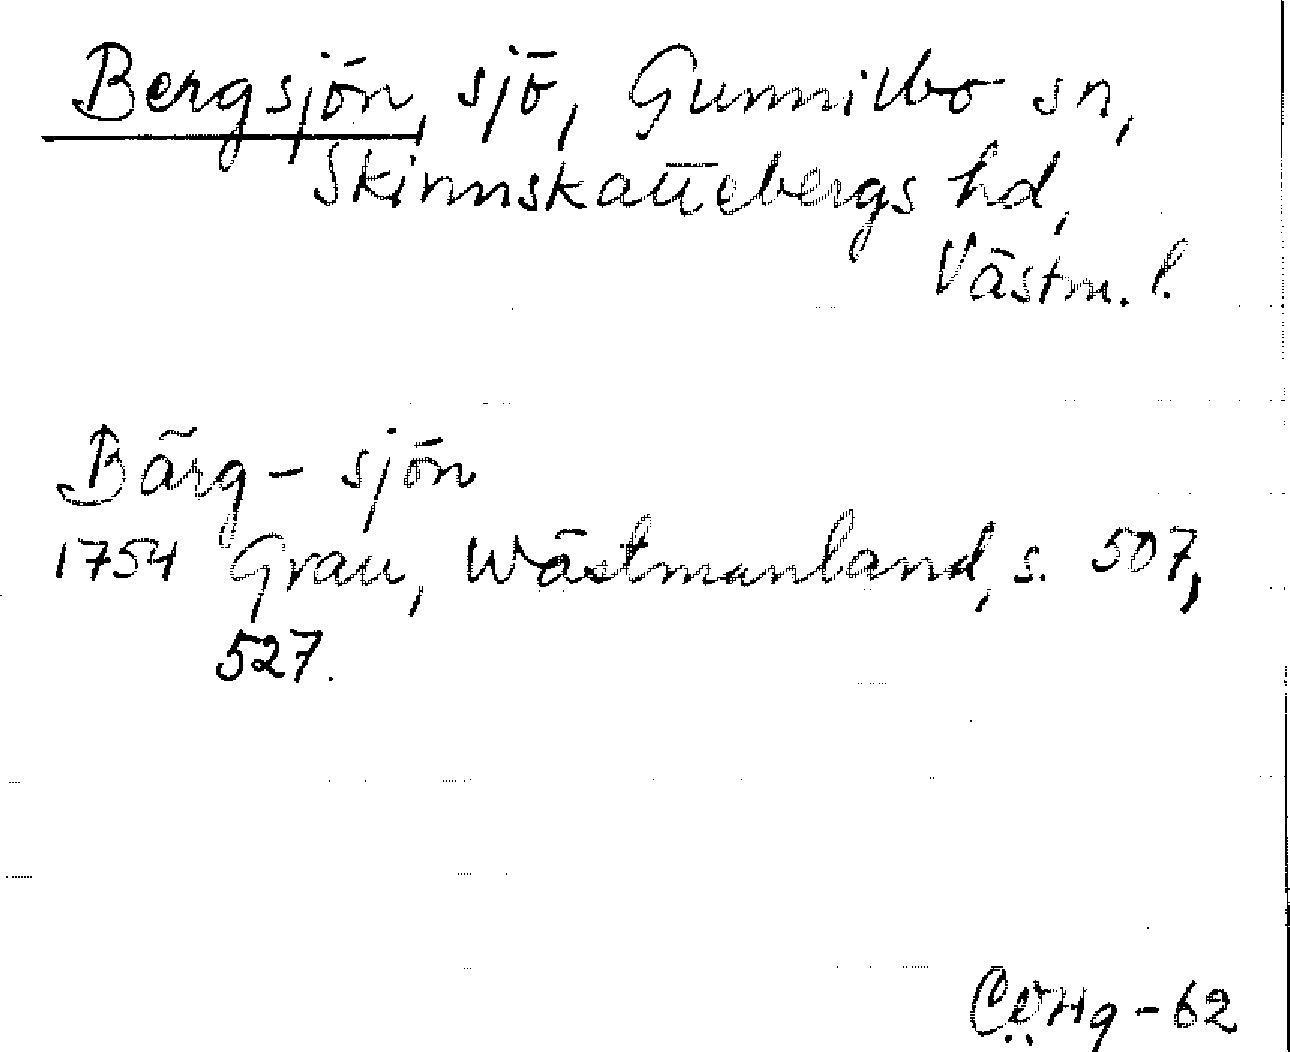 Bergsjön, sjö, Gunnilbo sn,
Skinnskattebergs hd,
Västm. l.
Bärg-sjön
1754 Grau, Wästmanland, s. 507,
527.